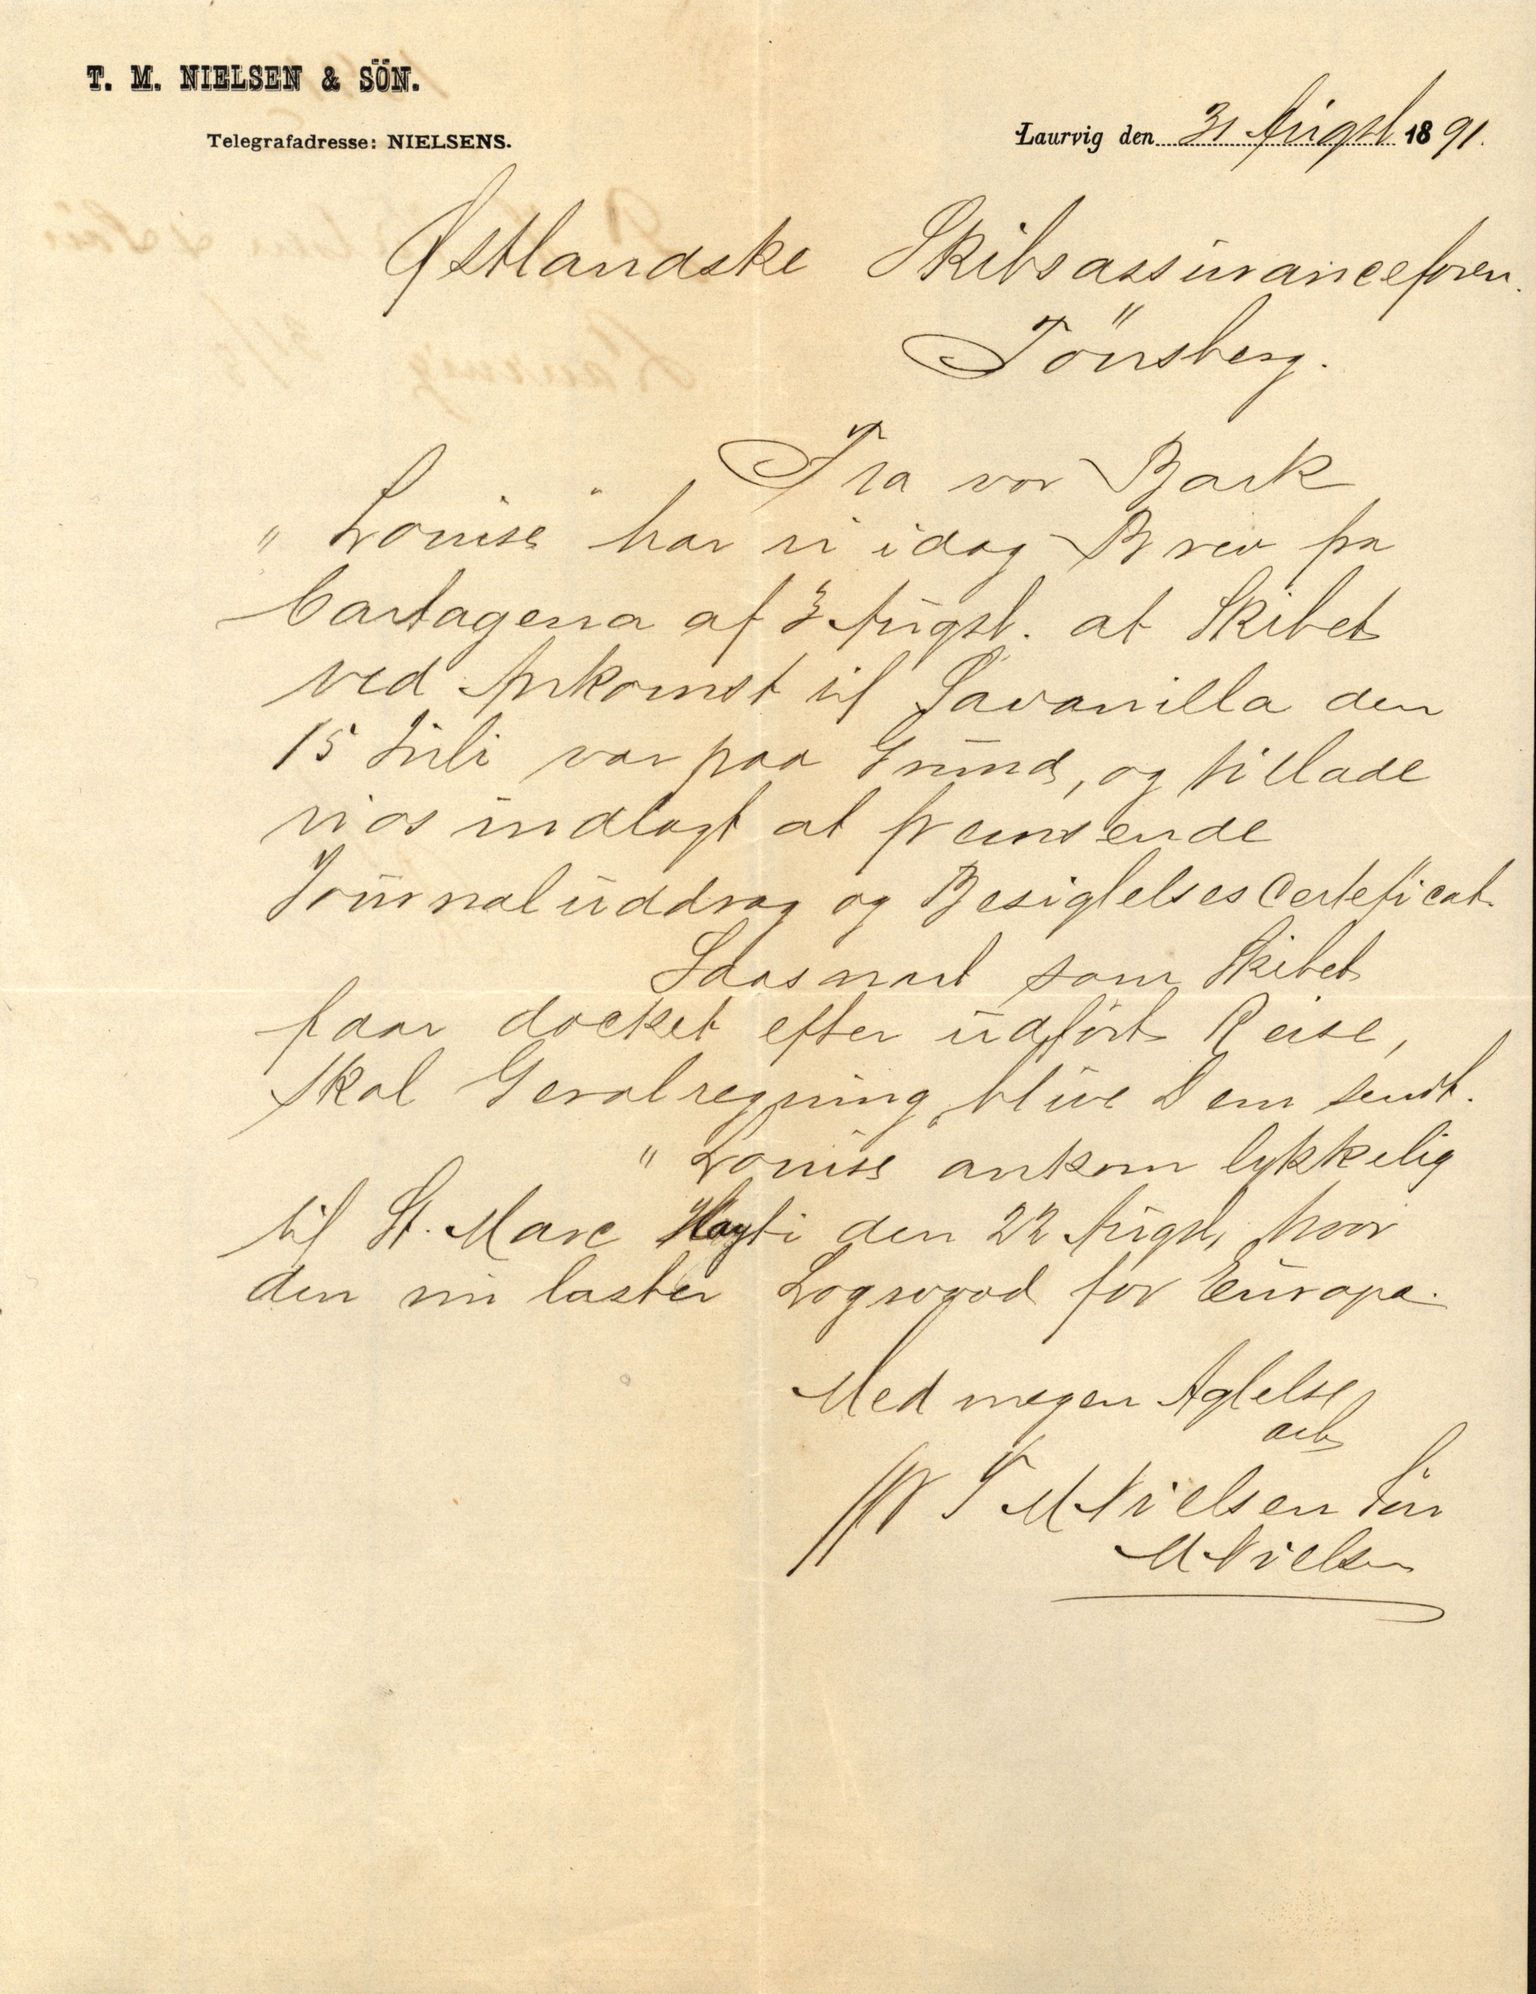 T. M. NIELSEN & SÖN.
Telegrafadresse: NIELSENS.
Laurvig den 31 Augst 1891.
Østlandske Skibsassuranceforen.
Tönsberg.
Fra vor Bark
"Louise" har vi idag Brev fra
Cartagena af 3 Augst. at Skibet
ved Ankomst til Savanilla den
15 Juli var paa Grund, og tillade
vi os indlagt at fremsende
Journaluddrag og BesigtelsesCerteficat.
Saasnart som Skibet
faar docket efter udført Reise,
skal Regning blive Dem sendt.
"Louise ankom lykkelig
til St. Marc Hayti den 22 Augst, hvor
den nu laster Logwood for Europa.
Med megen Agtelse
arb
pp T M Nielsen Sön
M Nielsen